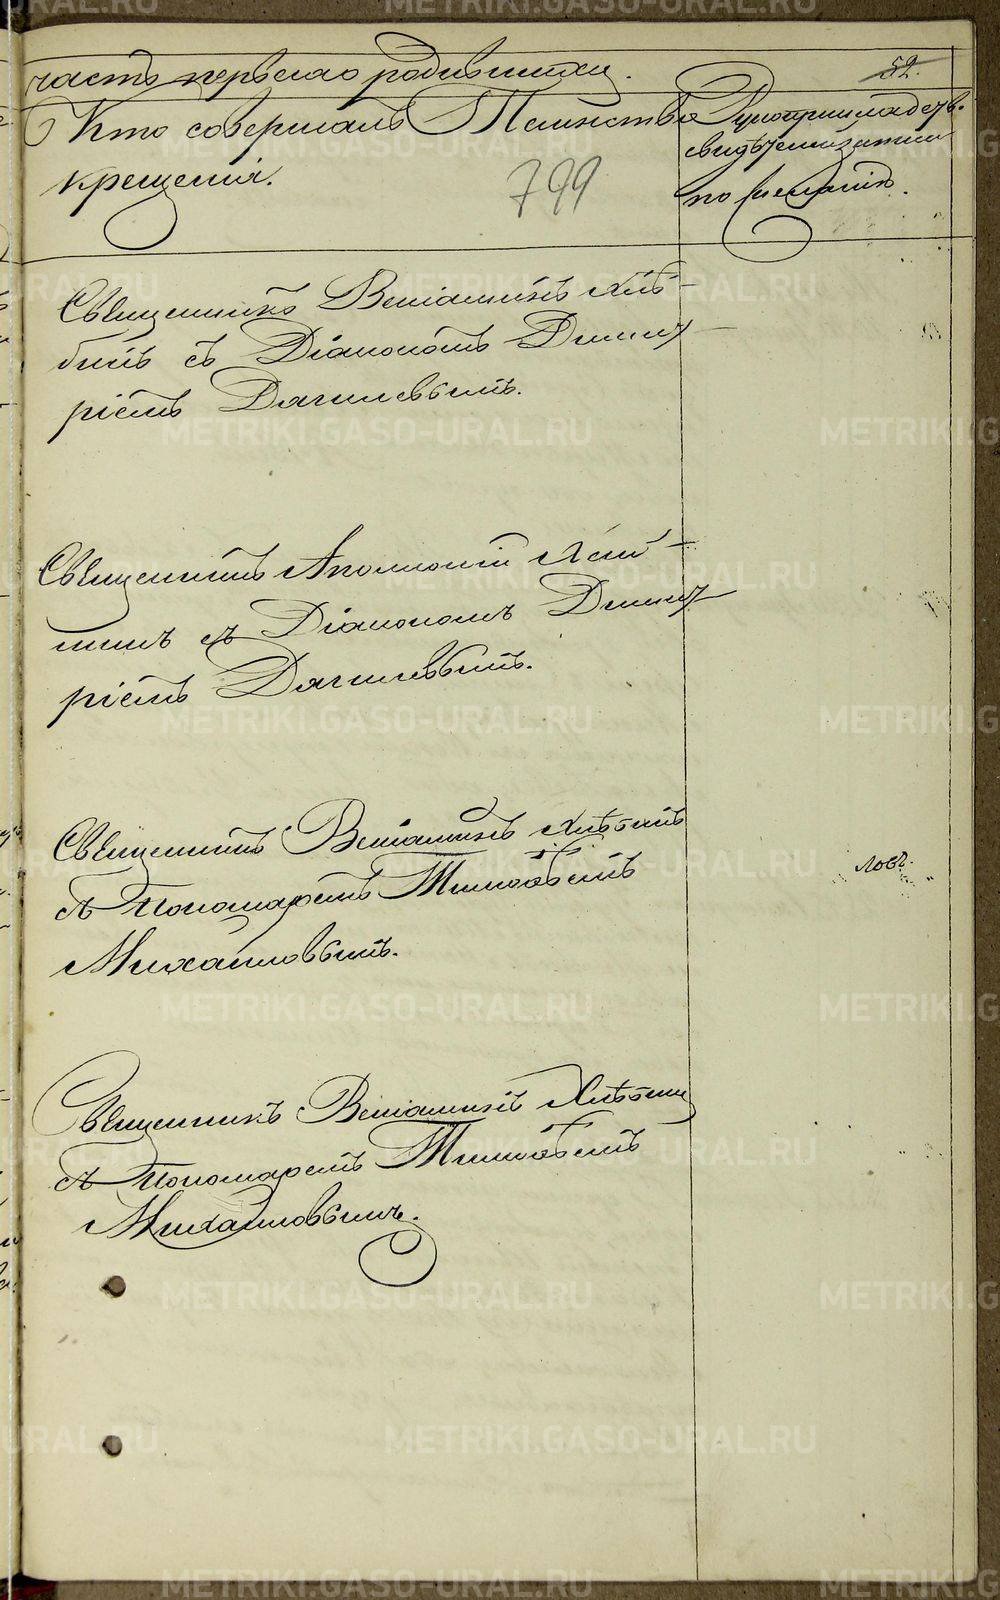 часть первая о родившихся.
52.
Кто совершалъ Таинство
крещенія.
799
Рукоприкладств.
свидѣтелей записи
по желанію.
Священникъ Веніаминъ Хлѣ-
бинъ съ Діакономъ Димит-
ріемъ Дягилевымъ.
Священникъ Аполлоній
съ Діакономъ Димит-
ріемъ Дягилевымъ.
Священникъ Веніаминъ Хлѣбинъ
съ Пономаремъ Тимоѳеемъ
Михайловымъ.
Ловъ.
Священникъ Веніаминъ Хлѣбинъ
съ Пономаремъ Тимоѳеемъ
Михайловымъ.
METRIKI.GASO-URAL.RU